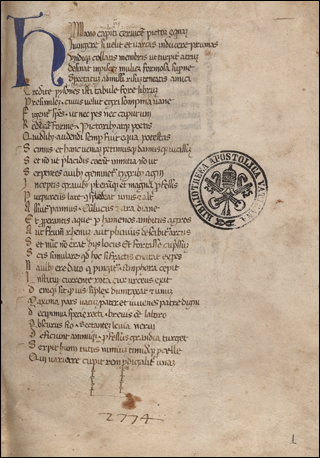 HUmano capiti cervicē pictor equinā
Iungere si velit et varias inducere plumas
Undiq; collatis membris ut turpiter atrū
Desinat in piscē mulier formosa supne
Spectatū admissi risū teneatis amici
Credite pisones isti tabule fore librū
Persimilem. cuius velut egri sompnia vane
Fingent̄ spēs. ut nec pes nec caput uni
Reddat̄ forme. Pictorib; atq; poetis
Quidlibet audendi semp fuit equa potestas
Scimus et hanc veniā petimusq; damusq; vicissī
Sed nō ut placidis coeāt inmitia nō ut
Serpentes avib; geminent̄ tygrib; agni
Inceptis gravib; plerūq; et magna pfessis
Purpureus late q splendeat unus et alt
Assuit̄ pannus. cū lucus et ara diane
Et pperantis aque p amenos ambitus agros
Aut flumē rhenū aut pluvius describit̄ arcus
Sed nūc nō erat hys locus et fortasse cupssū
Scis simulare qd hoc si fractis enatat expes
Navib; ere dato q pingit̄. amphora cepit
Institui currente rota cur urceus exit
Deniq; sit q vis simplex dumtaxat et unū
Maxima pars vatū pater et iuvenes patre digni
Decipimur specie recti. brevis eē laboro
Obscurus fio. sectantē levia nervi
Deficiunt animiq;. pfessus grandia turget
Serpit humi tutus nimiū timidusq; pcelle
Qui variare cupit rem pdigialit̄ unā
2774
BIBLIOTHECA APOSTOLICA VATICANA
1